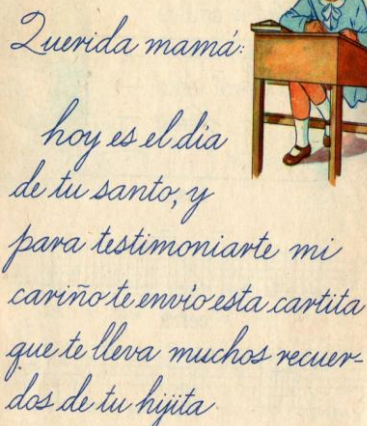 Querida mamá:
hoy es el día
de tu santo, y
para testimoniarte mi
cariño te envío esta cartita
que te lleva muchos recuer-
dos de tu hijita